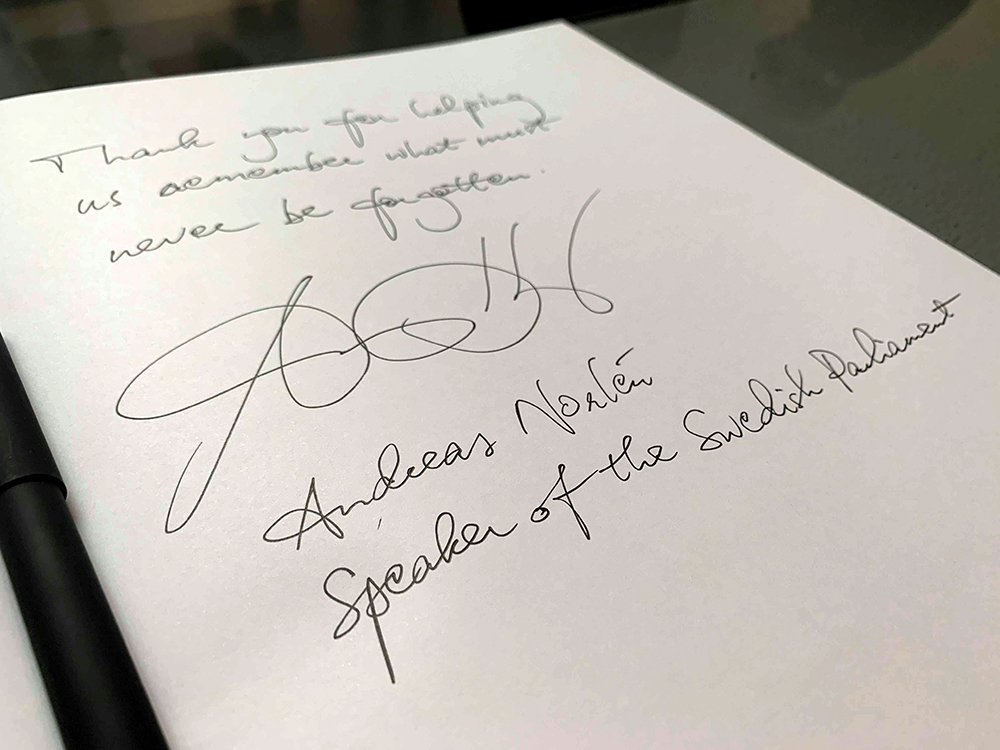 Thank you for helping
us remember what must
never be forgotten.
Andreas Norlén
Speaker of the Swedish Parliament